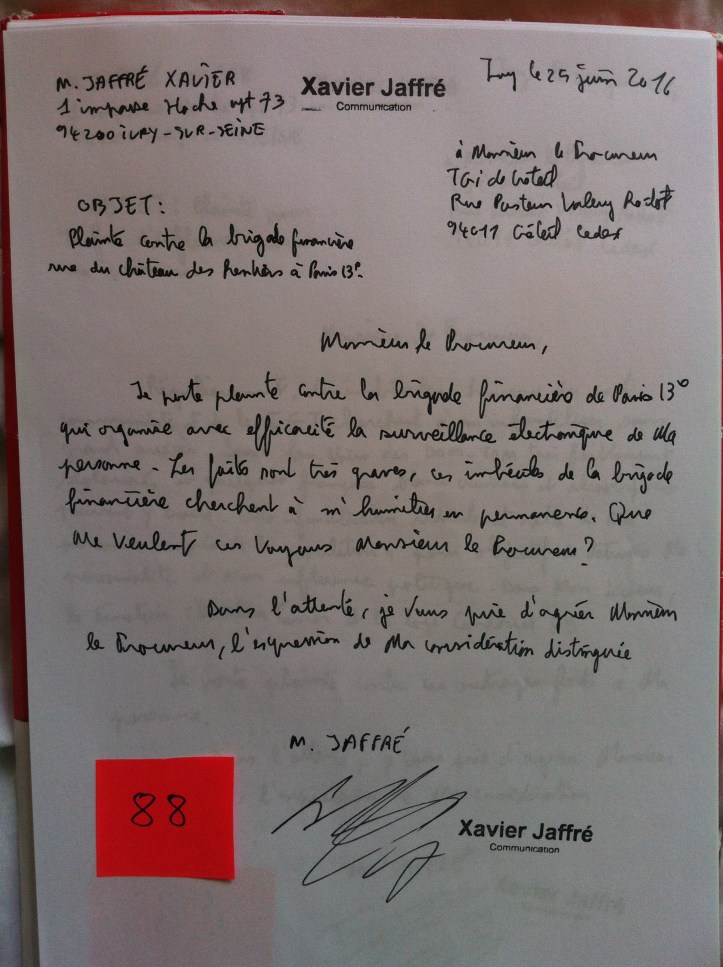 M. JAFFRÉ XAVIER
1 impasse Hoche apt 73
94200 IVRY-SUR-SEINE
Xavier Jaffré
Communication
Ivry le 25 juin 2016
à Monsieur le Procureur
TGI de Créteil
Rue Pasteur Valery Radot
94011 Créteil Cedex
OBJET:
Plainte contre la brigade financière
rue du château des Rentiers à Paris 13e.
Monsieur le Procureur,
Je porte plainte contre la brigade financière de Paris 13e
qui organise avec efficacité la surveillance électronique de Ma
personne - Les faits sont très graves, ces imbéciles de la brigade
financière cherchent à m'humilier en permanence. Que
Me Veulent ces Voyous Monsieur le Procureur?
Dans l'attente, je Vous prie d'agréer Monsieur
le Procureur, l'expression de Ma considération distinguée
M. JAFFRÉ
88
Xavier Jaffré
Communication